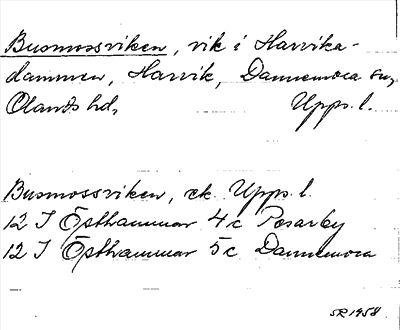 Busmossviken, vik i Harvika-
dammen, Harvik, Dannemora sn,
Olands hd, Upps. l.
Busmossviken, ek. Upps. l.
12 I Östhammar 4c Posarby
12 I Östhammar 5c Dannemora
SR 1958